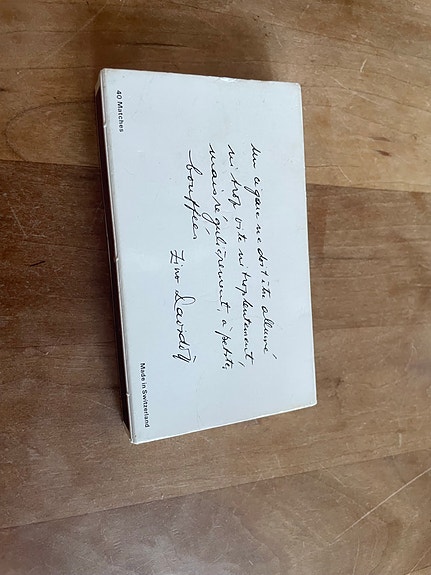 un cigare ne doit être allumé
ni trop vite ni trop lentement,
mais régulièrement, à petites
bouffées
Zino Davidoff
40 Matches
Made in Switzerland